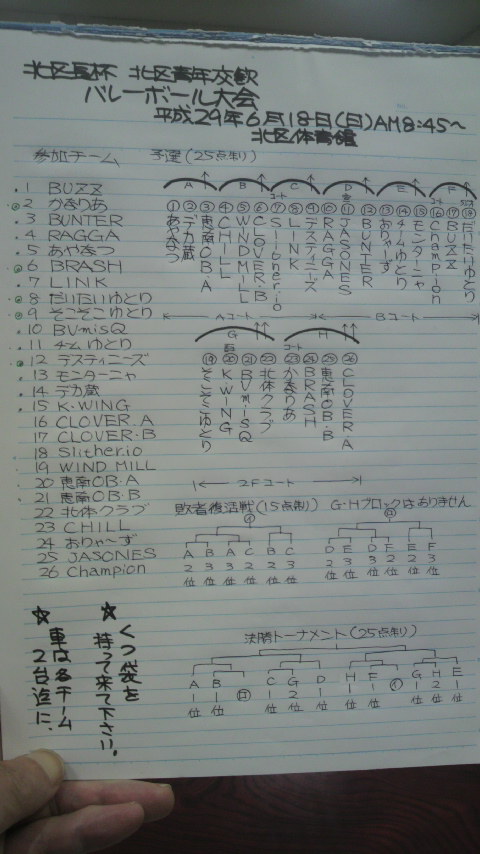 北区長杯 北区青年交歓
バレーボール大会
平成29年6月18日(日)AM8:45~
北区体育館
参加チーム 予選(25点制)
1 BUZZ
2 かまりあ
3 BUNTER
4 RAGGA
5 あやなつ
6 BRASH
7 LINK
8 だいたいゆとり
9 そこそこゆとり
10 BVmisQ
11 チムゆとり
12 デスティニーズ
13 モンターニャ
14 デカ蔵
15 K・WING
16 CLOVER.A
17 CLOVER・B
18 Slither.io
19 WIND MILL
20 恵南OB・A
21 恵南OB.B
22 北体クラブ
23 CHILL
24 おりゃ~ず
25 JASONES
26 Champion
A B C D E F
① ② ③ ④ ⑤ ⑥ ⑦ ⑧ ⑨ ⑩ ⑪ ⑫ ⑬ ⑭ ⑮ ⑯ ⑰ ⑱
あやなつ
デカ蔵
恵南OB.A
CHILL
WINDMILL
CLOVER.B
Slither.io
LINK
デスティニーズ
RAGGA
JASONES
BUNTER
おりゃーず
チムゆとり
モンターニャ
Champion
BUZZ
だいたいゆとり
Aコート Bコート
G H
⑲ ⑳ ㉑ ㉒ ㉓ ㉔ ㉕ ㉖
そこそこゆとり
K.WING
BVmisQ
北体クラブ
かまりあ
BRASH
恵南OB.B
CLOVER A
2Fコート
敗者復活戦(15点制) G・Hブロックはありません
A B A C B C D E D F E F
2 3 2 3 2 3 2 3 3 2 2 3
位 位 位 位 位 位 位 位 位 位 位 位
決勝トーナメント(25点制)
A B ㋺ C G D H F ㋑ G H E
1 1 1 2 1 1 1 1 2 1
位 位 位 位 位 位 位 位 位 位
☆ くつ袋を
持って来て下さい。
☆ 車は各チーム
2台迄に。